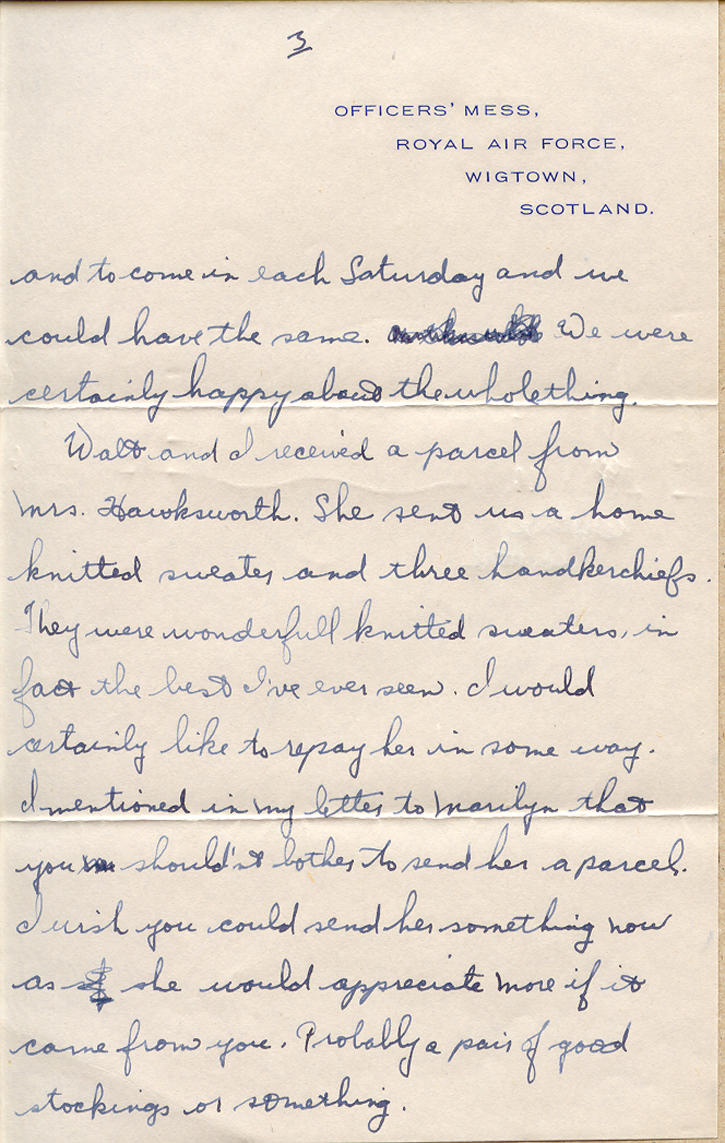 3
OFFICERS' MESS,
ROYAL AIR FORCE,
WIGTOWN,
SCOTLAND.
and to come in each Saturday and we
could have the same. We were
certainly happy about the whole thing.
Walt and I received a parcel from
Mrs. Hawksworth. She sent us a home
knitted sweater and three handkerchiefs.
They were wonderfull knitted sweaters, in
fact the best I've ever seen. I would
certainly like to repay her in some way.
I mentioned in my letter to Marilyn that
you should'nt bother to send her a parcel.
I wish you could send her something now
as she would appreciate more if it
came from you. Probably a pair of good
stockings or something.